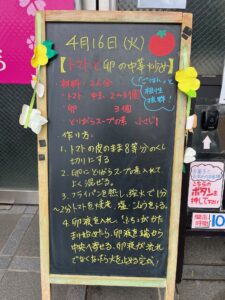 4月16日(火)
【トマトと卵の中華炒め】
材料:2人分
トマト 中玉 2〜3個
卵 3個
とりがらスープの素 小さじ1
ごはんと
相性
抜群!
作り方:
1. トマトの皮のまま8等分のくし
切りにする
2. 卵にとりがらスープの素入れて
よく混ぜる。
3. フライパンを熱し、強火で1〜
2分トマトを焼き、塩こしょうをふる。
4. 卵液を入れ、ふちがかた
まり始めたら、卵液を端から
中央へ寄せる。卵液が流れ
でなくなったら火を止める完成!
こちらの
ボタンを
押して下さい
10